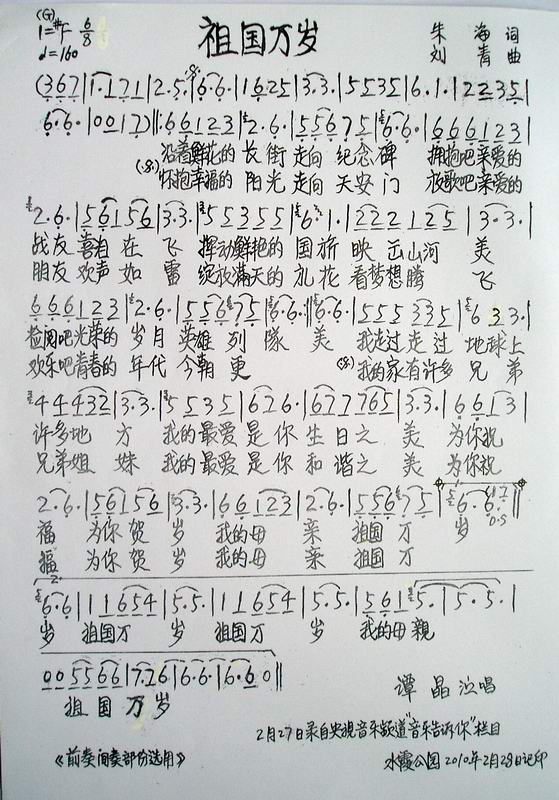 (G)
1=#F 6/8
♩=160
祖国万岁
朱海 词
刘青 曲
(367|1·171|2·5·|6·6·|1625|3·3·|5535|6·1·|2235|
6·6·|0017)‖:66123|2·6·|55675|6·6·|666123|
沿着鲜花的 长 街 走向 纪念 碑 拥抱吧亲爱的
怀抱幸福的 阳 光 走向 天安 门 放歌吧亲爱的
2·6·|56156|3·3·|55355|6·1·|222125|3·3·|
战友 喜泪 在 飞 挥动鲜艳的 国旗 映 山河 美
朋友 欢声 如 雷 绽放满天的 礼花 看梦想腾 飞
666123|2·6·|55675|6·6·:‖6·6·|555335|6 3 3·|
检阅吧光荣的 岁月 英雄 列 隊 美 我走过走 过 地球上
欢乐吧青春的 年代 今朝 更 我的家有许多 兄 弟
44432|3·3·|5535|626·|6777765|3·3·|6613|
许多地 方 我的最爱是你 生 日之 美 为你祝
兄弟姐 妹 我的最爱是你 和 谐之 美 为你祝
2·6·|56156|3·3·|66123|2·6·|55675|6·6·‖
D.S
福 为你 贺 岁 我的母 亲 祖国 万 岁
福 为你 贺 岁 我的母 亲 祖国 万
2.
6·6|11654|5·5·|11654|5·5·|5615·|5·5·|
岁 祖国万 岁 祖国万 岁 我的母親
005566|7·26|6·6·|6·60‖
祖 国 万 岁
谭 晶 演唱
2月27日录自央視音乐频道"音乐告诉你"栏目
《前奏间奏部份选用》
水霞公园2010年2月28日记印